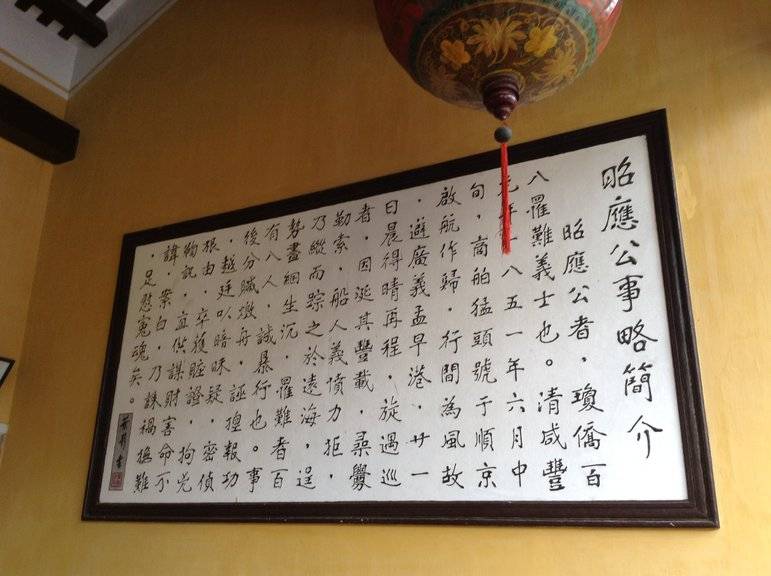 昭應公事略簡介
昭應公者，瓊僑百
八罹難義士也。清咸豐
元年一八五一年六月中
旬，商舶猛頭號于順京
啟航作歸，行間為風故
，避廣義孟早港，廿一
日晨得晴再程，旋遇巡
者，因涎其豐載，尋釁
勒索，船人義憤力拒，
乃縱而踪之於遠海，逞
勢盡綑生沉，罹難者百
有八人，誠暴行也。事
後分贓燬舟，誣揑報功
，越廷以暗昧疑，密偵
根由，卒獲賍證，拘兇
鞫訊，直供謀財害命不
諱，案白，乃誅禍難
，足慰寃魂矣。